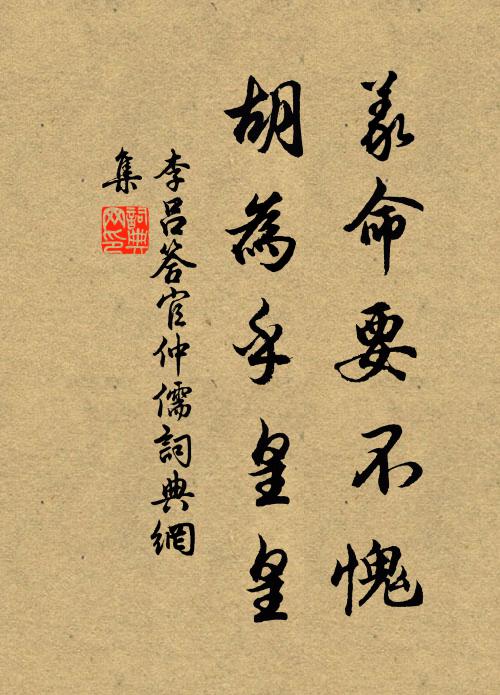 義命要不愧
胡為乎皇皇
李呂答官仲儒詞典網
集
詞典
网印